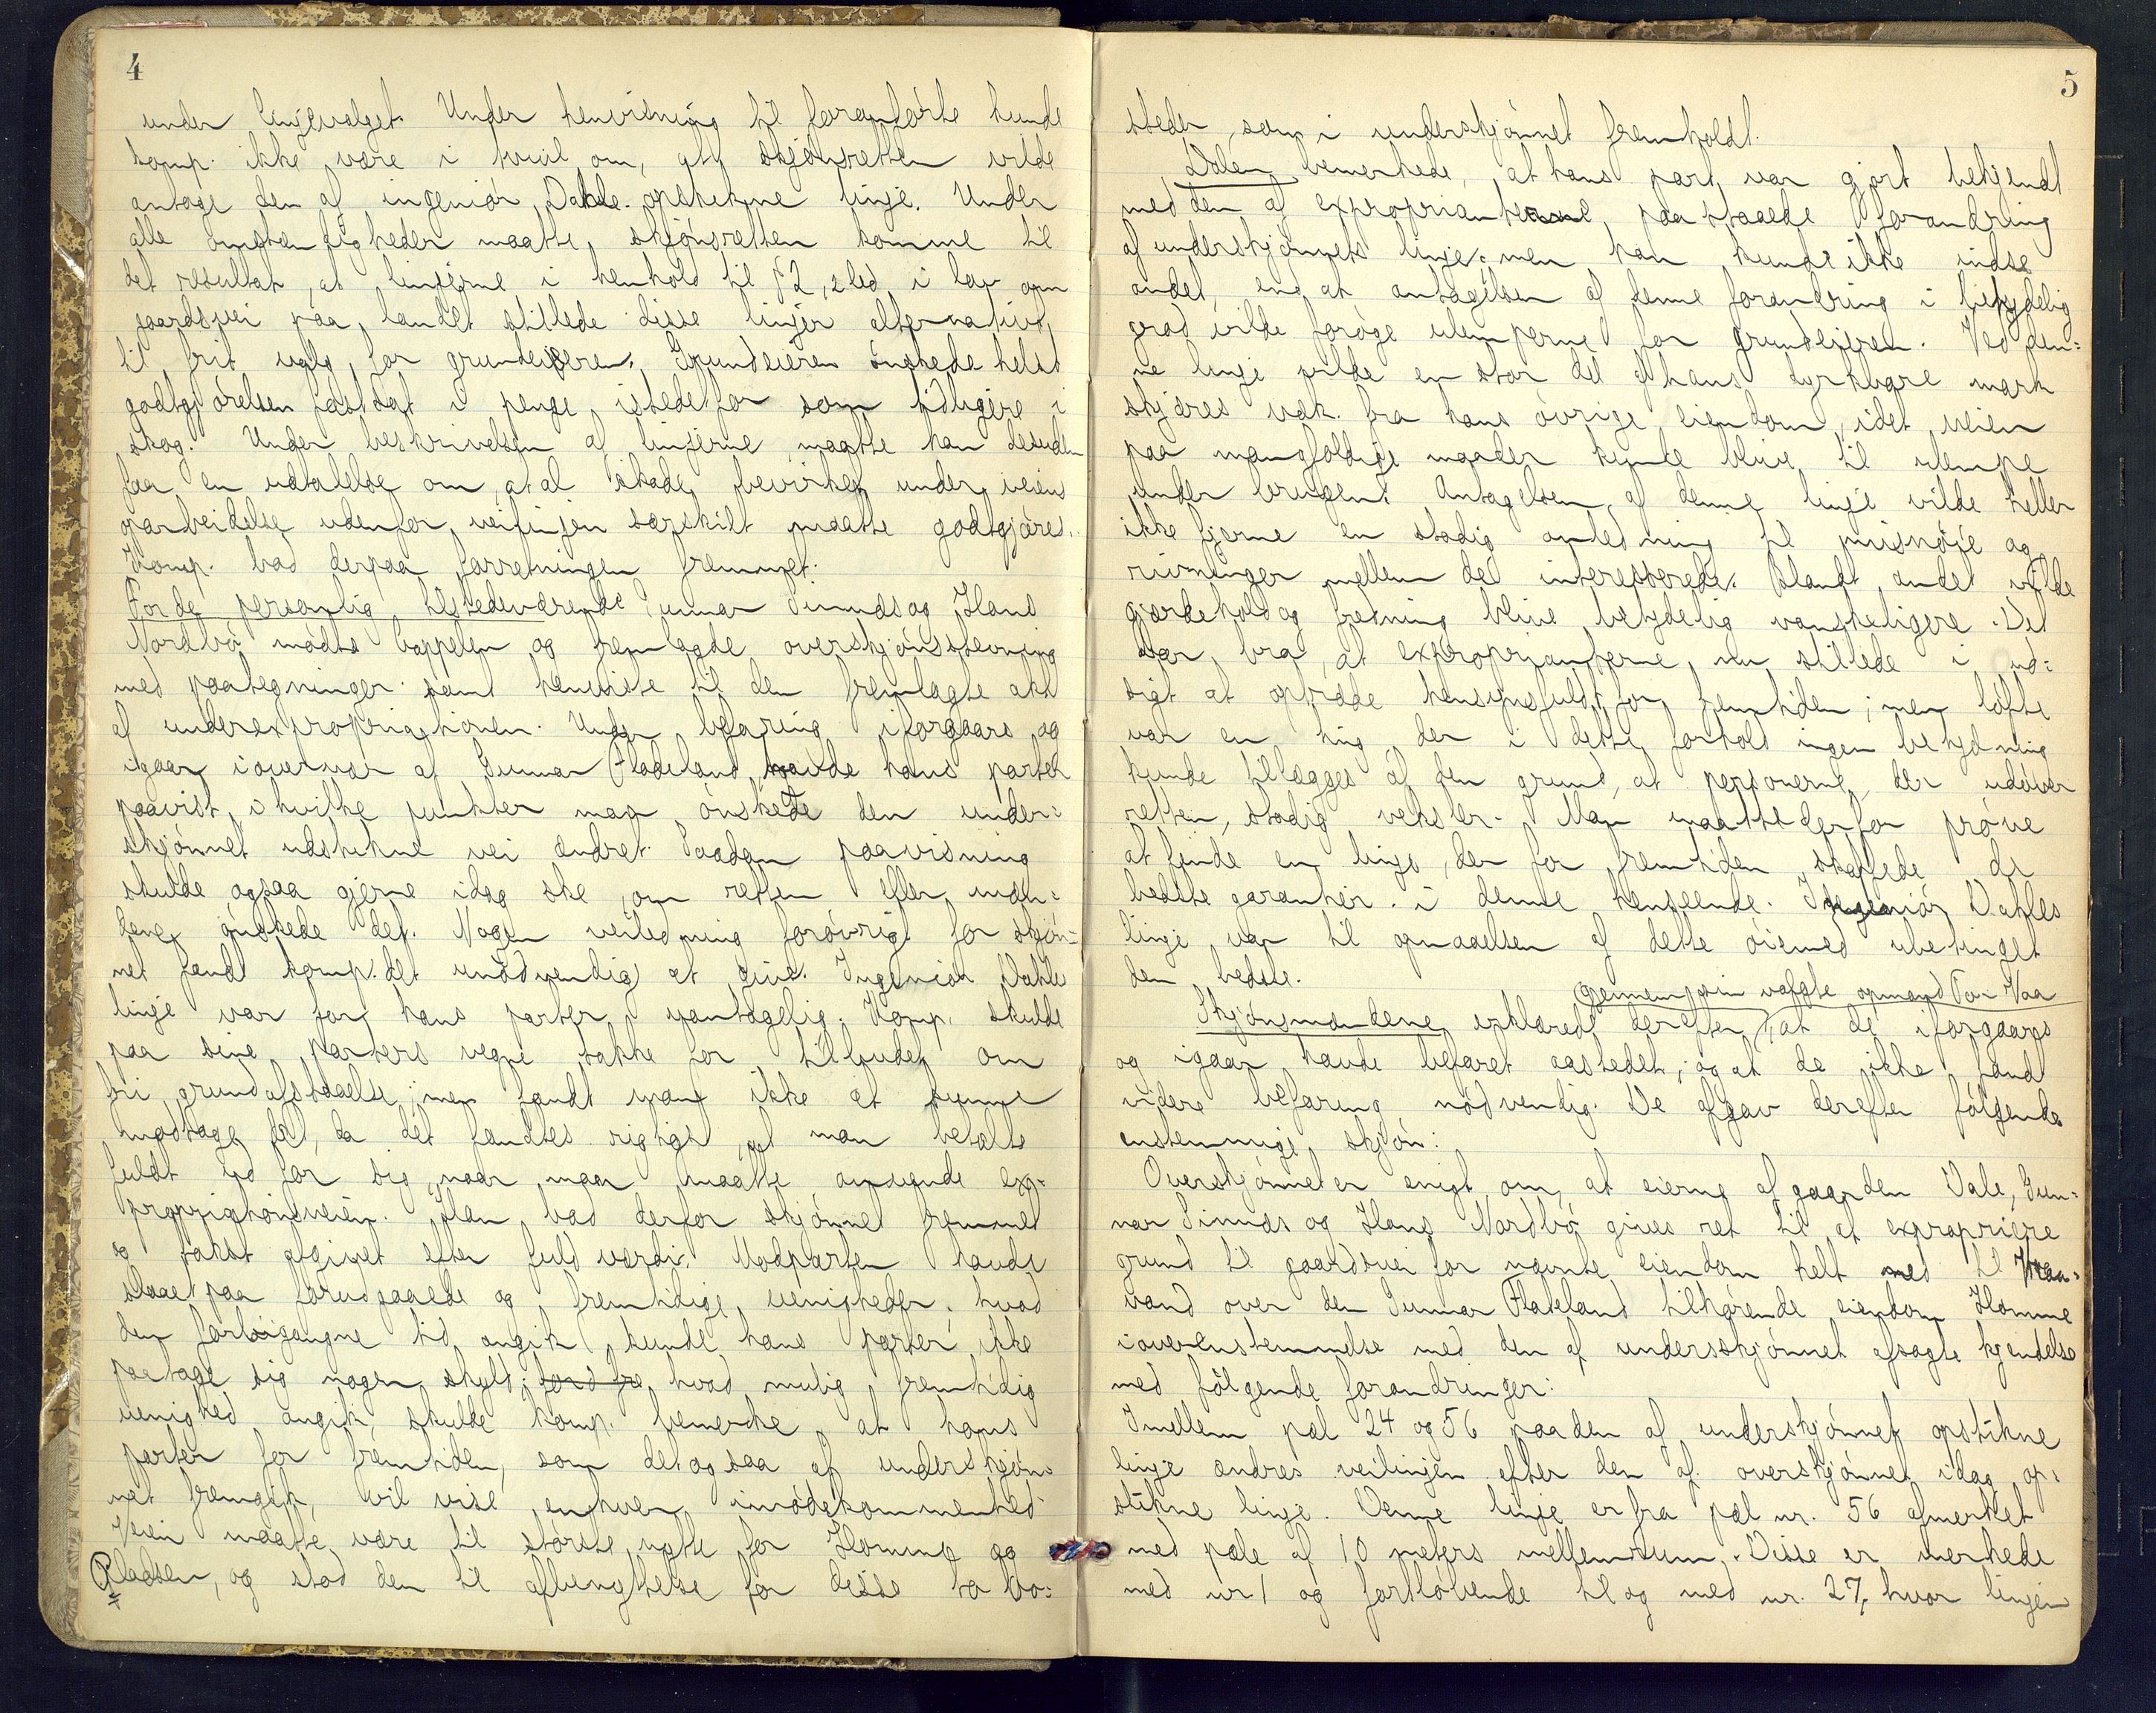 4
under linjevalget. Under henvisning til foranførte kunde
komp. ikke være i tvivl om, at skjønsretten vilde
antage den af ingeniør Dahle opstukne linje. Under
alle omstændigheder maatte skjønsretten komme til
det resultat, at linjerne i henhold til § 2, 2 led i lov om
gaardsvei paa landet stillede disse linjer alternativt
til frit valg for grundeieren. Grundeieren ønskede helst
godtgjørelsen fastsat i penge istedetfor som tidligere i
skog. Under beskrivelsen af linjerne maatte han desuden
faa en udtalelse om, at al skade, bevirket under veiens
oparbeidelse udenfor veilinjen særskilt maatte godtgjøres.
Komp. bad derpaa forretningen fremmet.
For de personlig tilstedeværende Gunnar Simuds og Hans
Nordbø mødte Coppelen og fremlagde overskjønsstevning
med paategninger samt henviste til den fremlagte akt
af underexpropriationen. Under befaring iforgaars og
igaar i overvær af Gunnar Fladeland, havde hans parter
paavist, i hvilke punkter man ønskede den under-
skjønnet udstukne vei ændret. Saadan paavisning
skulde ogsaa gjerne idag ske, om retten eller mæn-
dene ønskede det. Nogen veiledning forøvrigt for skjøn-
net fandt komp. det unødvendig at give. Ingeniør Dahles
linje var for hans parter uantagelig. Komp. skulde
paa sine parters vegne takke for tilbudet om
fri grundafstaaelse; men fandt man ikke at kunne
modtage det, da det fandtes rigtigst, at man betalte
fuldt ud for sig, naar man maatte anvende ex-
propriationsveien. Han bad derfor skjønnet fremmet
og takst afgivet efter fuld værdi. Modparten havde
slaaet paa forudgaaede og fremtidige uenigheder; hvad
den forbigangne tid angik, kunde hans parter ikke
paatage sig nogen skyld; hvad mulig fremtidig
uenighed angik, skulde komp. bemerke, at hans
parter for fremtiden, som det ogsaa af underskjøn-
net fremgik, vil vise enhver imødekommenhed.
Veien maatte være til største nytte for Homme og
Pladsen, og stod den til afbenyttelse for disse to bo-
5
steder, som i underskjønnet fremholdt.
Dalen bemerkede, at hans part var gjort bekjendt
med den af exproprianterne paastaaede forandring
af underskjønnets linje; men han kunde ikke indse
andet, end at antagelsen af denne forandring i betydelig
grad vilde forøge ulemperne for grundeieren. Ved den-
ne linje vilde en stor del af hans dyrkbare mark
skjæres væk fra hans øvrige eiendom, idet veien
paa mangfoldige maader kunde blive til ulempe
under brugen. Antagelsen af denne linje vilde heller
ikke fjerne en stadig anledning til misnøie og
rivninger mellem de interesserede. Blandt andet vilde
gjærdehold og fredning blive betydelig vanskeligere. Det
var bra, at exproprianterne nu stillede i ud-
sigt at optræde hensynsfuldt for fremtiden; men løfte
var en ting, der i dette forhold ingen betydning
kunde tillægges af den grund, at personerne, der udøver
retten, stadig veksler. Man maatte derfor prøve
at finde en linje, der for fremtiden skaffede de
bedste garantier i denne henseende. Ingeniør Dahles
linje var til opnaaelsen af dette øiemed ubetinget
den bedste.
gjennem sin valgte opmand Tor Vaa
Skjønsmændene erklærede derefter, at de iforgaars
og igaar havde befaret aastedet, og at de ikke fandt
videre befaring nødvendig. De afgav derefter følgende
enstemmige skjøn:
Overskjønnet er enigt om, at eierne af gaarden Dale, Gun-
nar Simuds og Hans Nordbø gives ret til at expropriere
grund til gaardsvei for nævnte eiendom helt ned til Vraa-
vand over den Gunnar Fladeland tilhørende eiendom Homme
i overenstemmelse med den af underskjønnet afsagte kjendelse
med følgende forandringer:
Imellem pæl 24 og 56 paa den af underskjønnet opstukne
linje ændres veilinjen efter den af overskjønnet idag op-
stukne linje. Denne linje er fra pæl nr. 56 afmerket
med pæle af 10 meters mellemrum. Disse er merkede
med nr 1 og fortløbende til og med nr. 27, hvor linjen